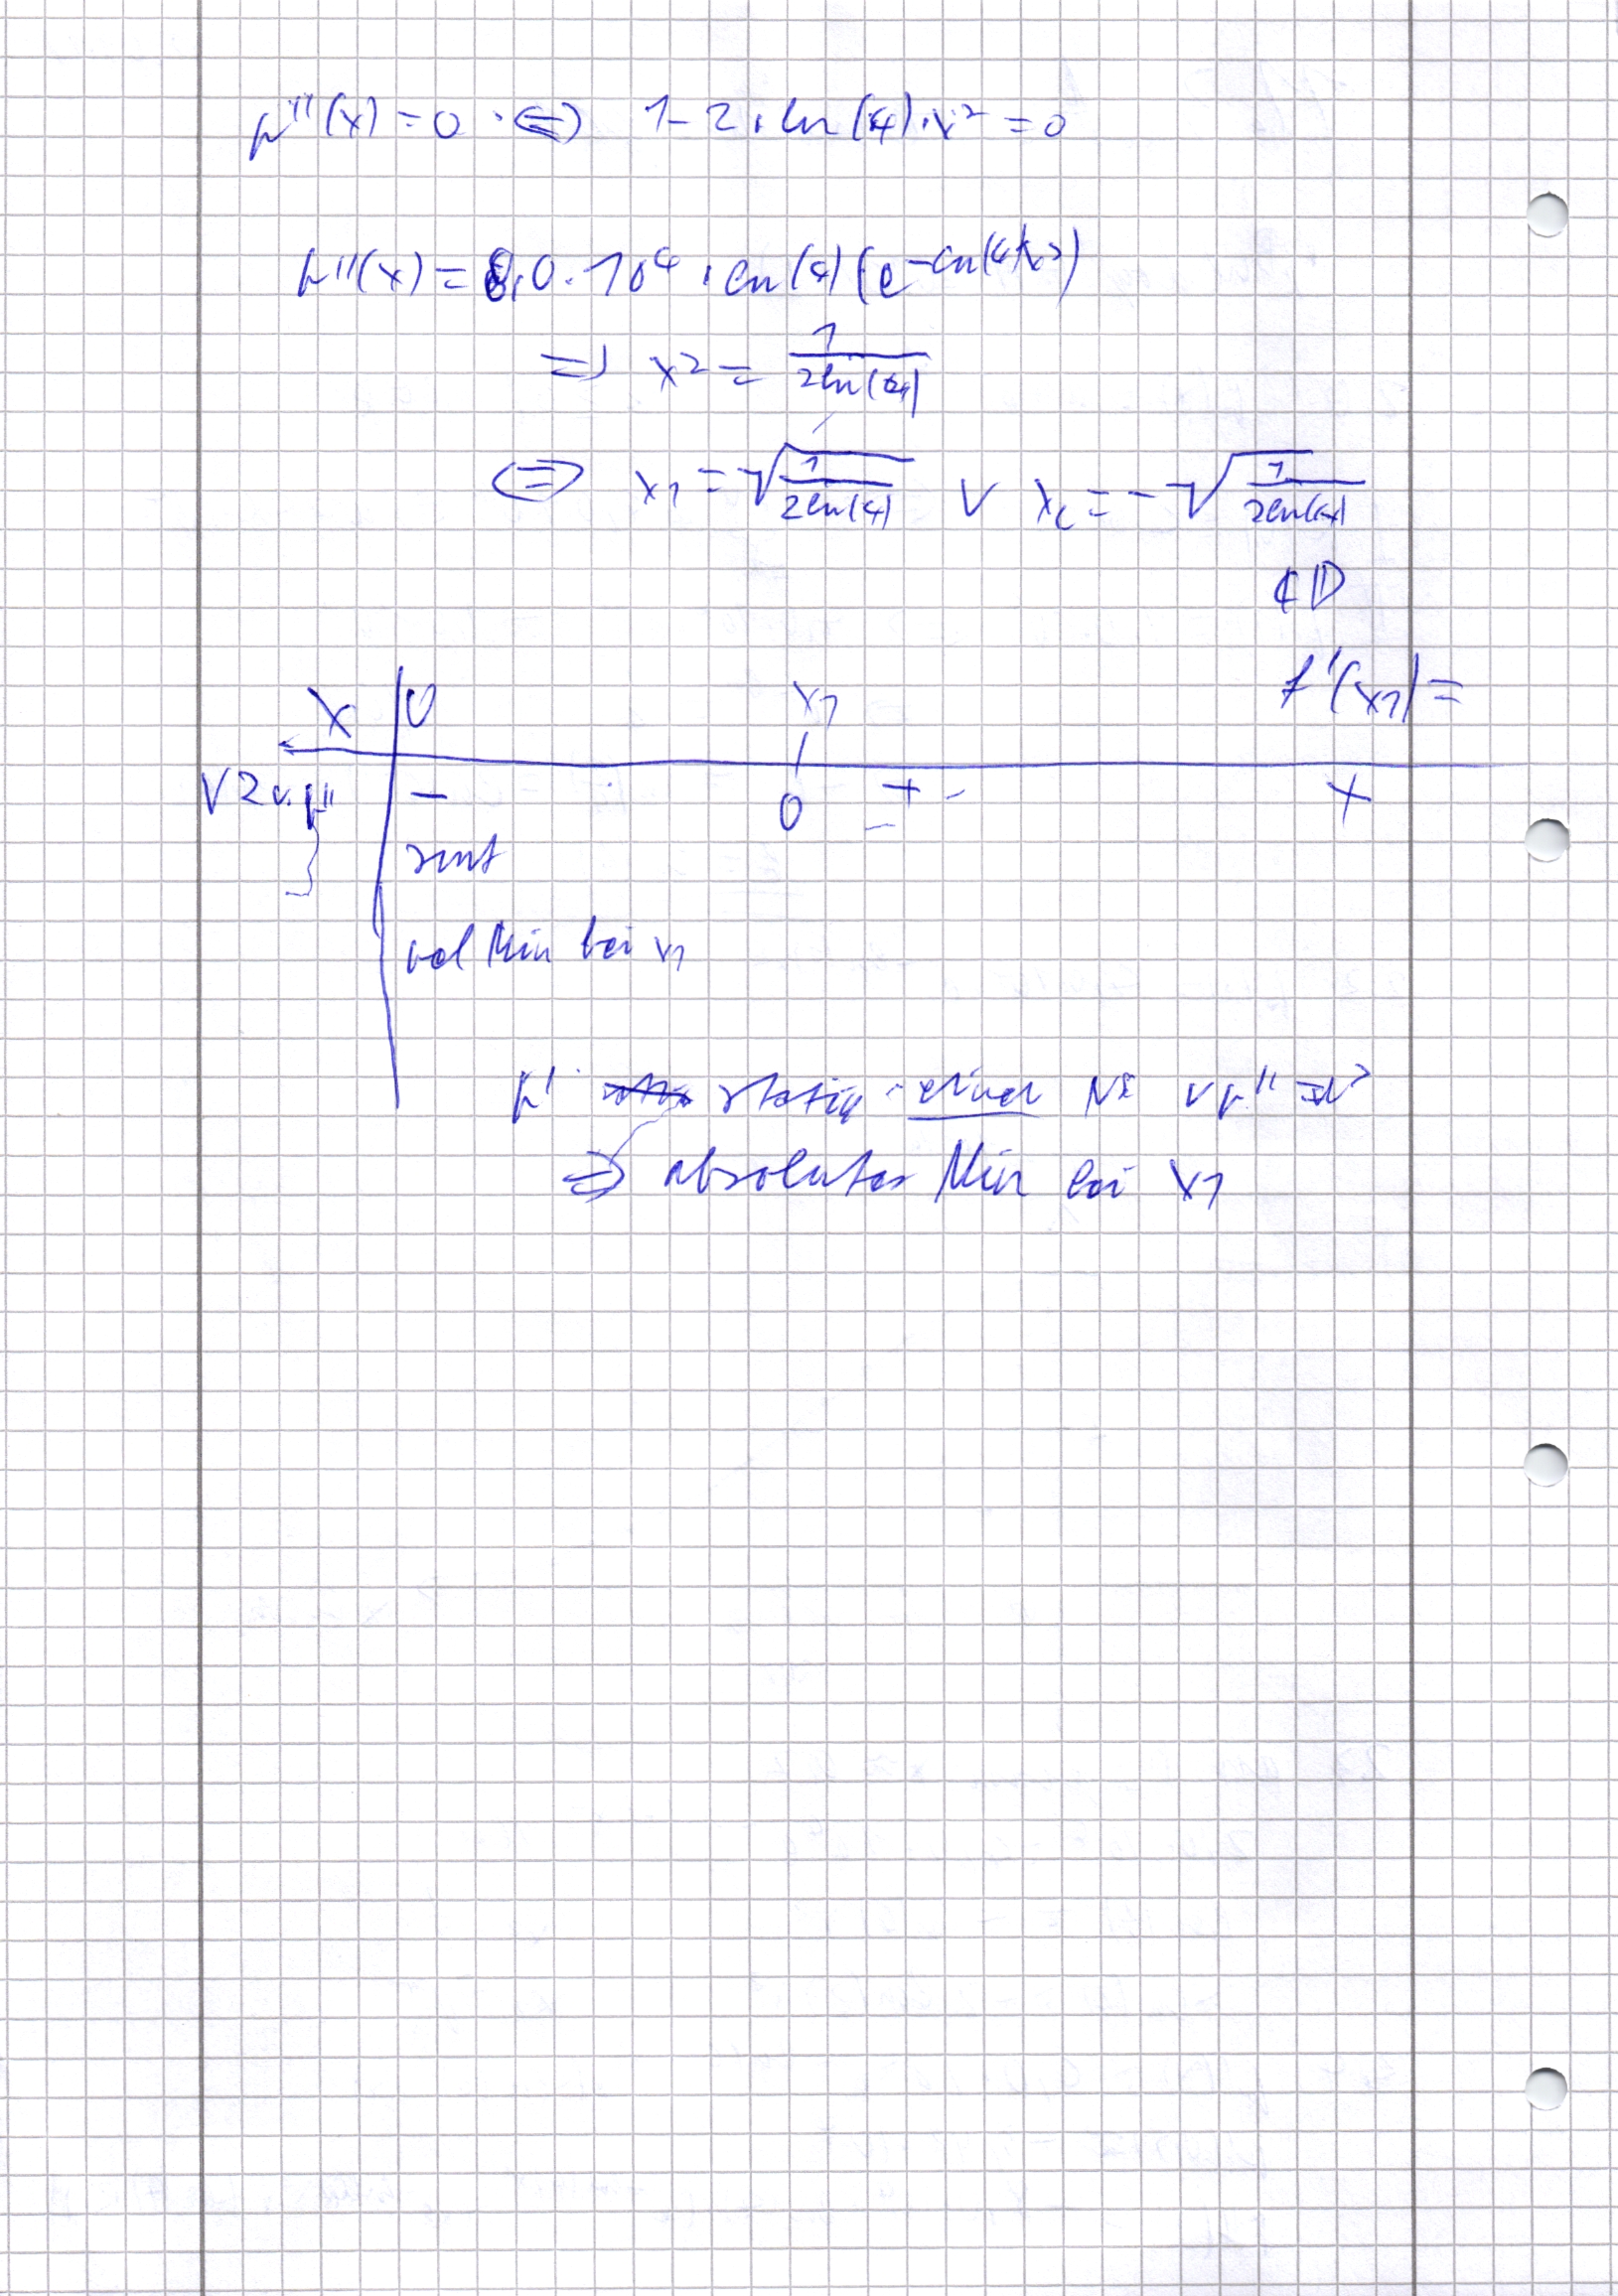 p''(x) = 0 · ⇔ 1 - 2 · ln(4) · x² = 0
p''(x) = 8,0 · 10⁴ · ln(4) (e^-ln(4)x²)
⇒ x² = 1/(2ln(4))
⇔ x₁ = √(1/(2ln(4))) ∨ x₂ = -√(1/(2ln(4)))
∉ D
f'(x₁) =
x | 0 x₁
VZ v. p'' | - 0 + +
smf
rel Min bei x₁
p' stetig einer NS v p''
⇒ absolutes Min bei x₁